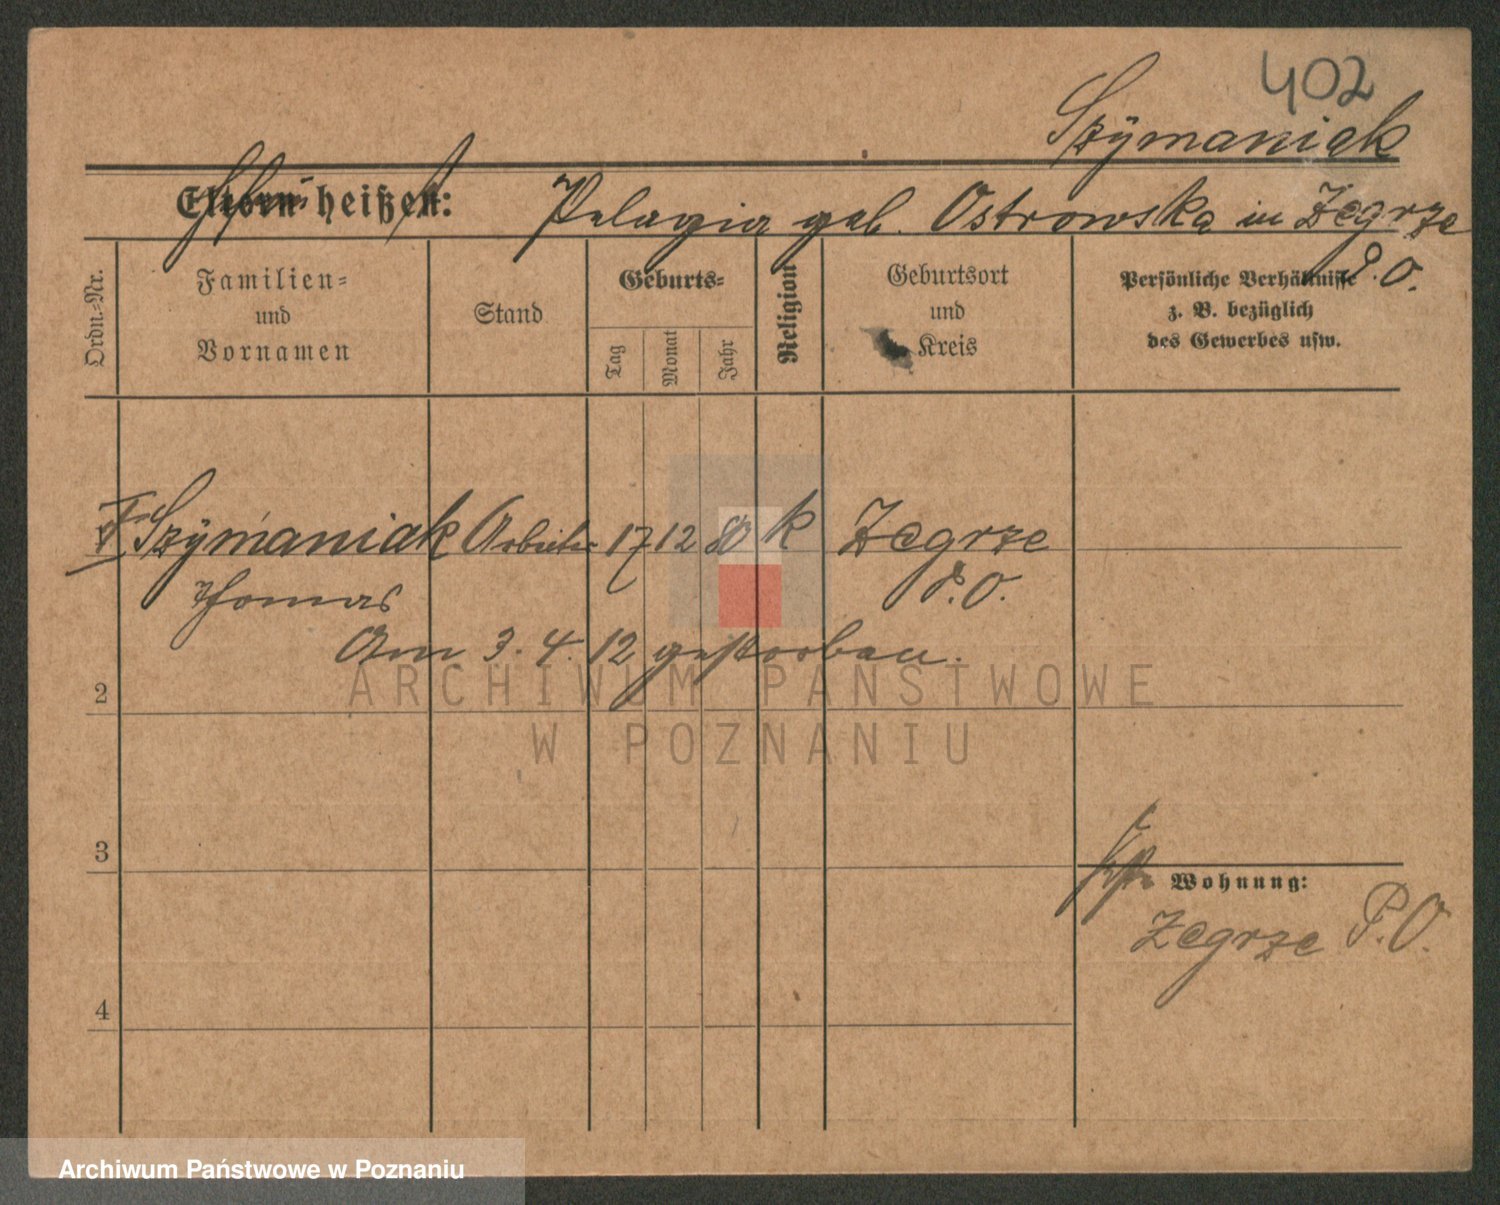 402
Szÿmaniak
Eltern heißen: Pelagia geb. Ostrowska in Zegrze
P.O.
Ordn.-Nr.
Familien-
und
Vornamen
Stand
Geburts-
Tag
Monat
Jahr
Religion
Geburtsort
und
Kreis
Persönliche Verhältnisse
z. B. bezüglich
des Gewerbes usw.
Szÿmaniak Arbeiter 17 12 80 k Zegrze
Thomas P.O.
Am 3. 4. 12 gestorben.
2
ARCHIWUM PAŃSTWOWE
W POZNANIU
3
Wohnung:
Zegrze P.O.
4
Archiwum Państwowe w Poznaniu